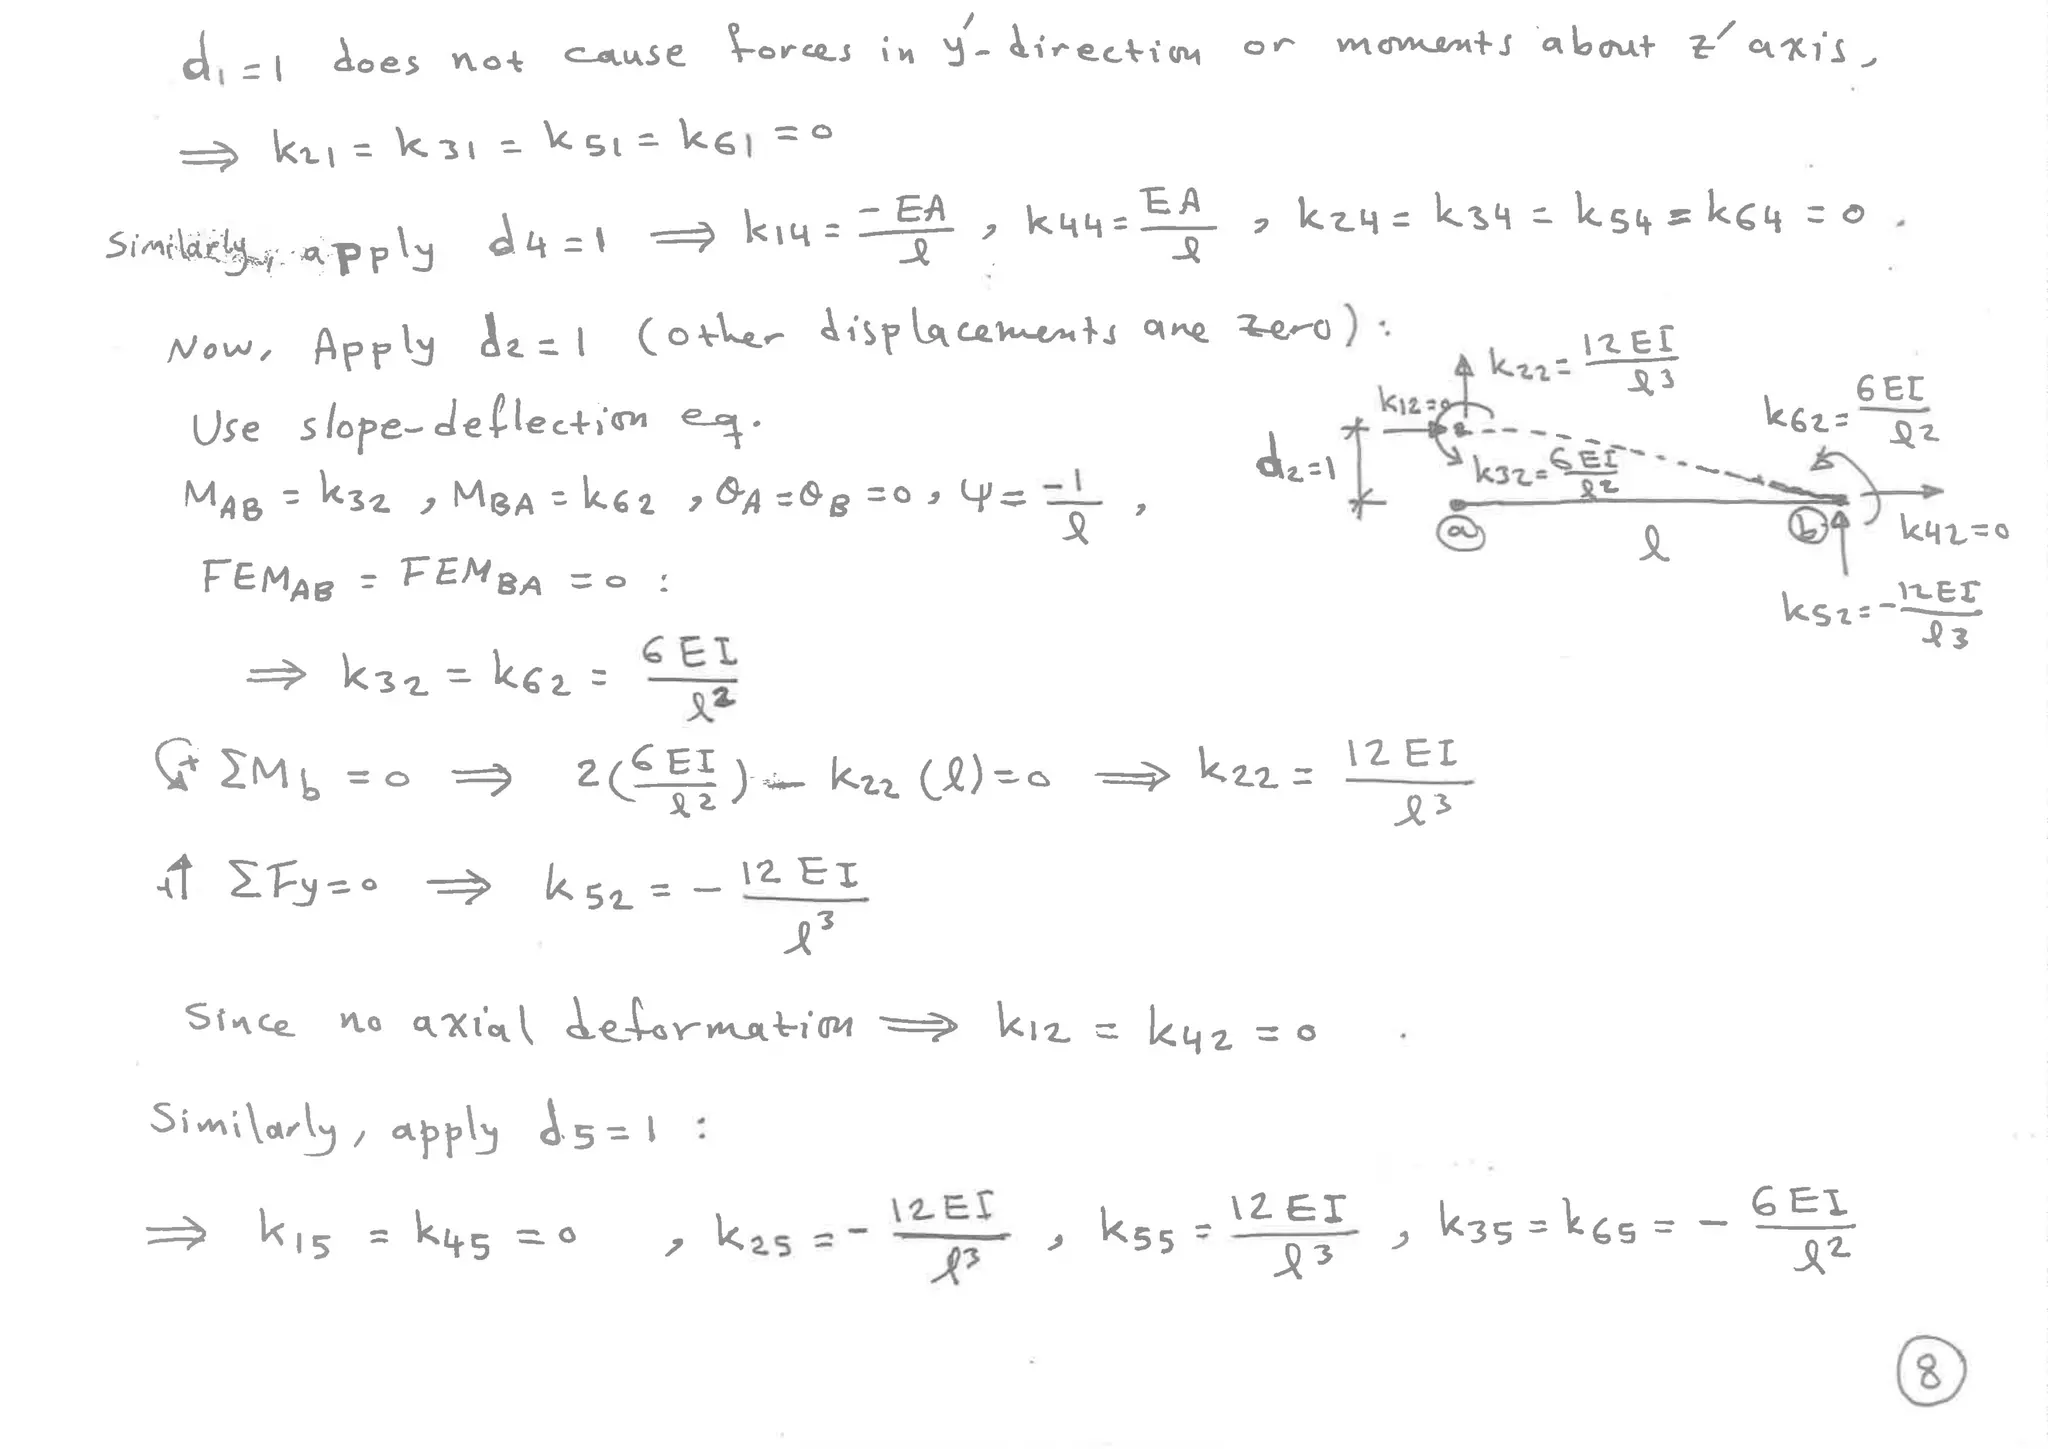 d₁=1 does not cause forces in y'-direction or moments about z' axis,
⇒ k₂₁ = k₃₁ = k₅₁ = k₆₁ = 0
Similarly, apply d₄=1 ⇒ k₁₄ = -EA/l , k₄₄ = EA/l , k₂₄ = k₃₄ = k₅₄ = k₆₄ = 0 .
Now, Apply d₂=1 (other displacements are zero) :
Use slope-deflection eq.
M_AB = k₃₂ , M_BA = k₆₂ , θ_A = θ_B = 0 , ψ = -1/l ,
FEM_AB = FEM_BA = 0 :
k₂₂ = 12EI/l³
k₁₂=0
k₆₂ = 6EI/l²
d₂=1
k₃₂ = 6EI/l²
a
l
b
k₄₂=0
k₅₂ = -12EI/l³
⇒ k₃₂ = k₆₂ = 6EI/l²
+ ΣM_b = 0 ⇒ 2(6EI/l²) - k₂₂ (l) = 0 ⇒ k₂₂ = 12EI/l³
+↑ ΣFy=0 ⇒ k₅₂ = - 12EI/l³
Since no axial deformation ⇒ k₁₂ = k₄₂ = 0 .
Similarly, apply d₅=1 :
⇒ k₁₅ = k₄₅ = 0 , k₂₅ = - 12EI/l³ , k₅₅ = 12EI/l³ , k₃₅ = k₆₅ = - 6EI/l²
8